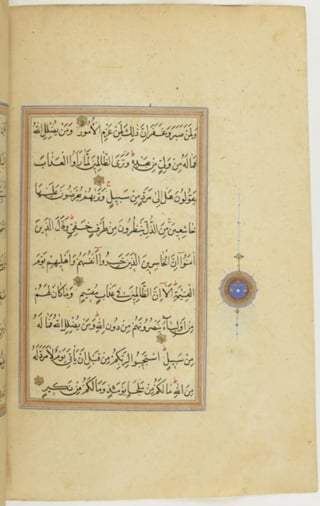 وَلَمَنْ صَبَرَ وَغَفَرَ اِنَّ ذٰلِكَ لَمِنْ عَزْمِ الْاُمُورِ وَمَنْ يُضْلِلِ اللّٰهُ
فَمَا لَهُ مِنْ وَلِيٍّ مِنْ بَعْدِهِ وَتَرَى الظَّالِمِينَ لَمَّا رَاَوُا الْعَذَابَ
يَقُولُونَ هَلْ اِلٰى مَرَدٍّ مِنْ سَبِيلٍ وَتَرٰيهُمْ يُعْرَضُونَ عَلَيْهَا
خَاشِعِينَ مِنَ الذُّلِّ يَنْظُرُونَ مِنْ طَرْفٍ خَفِيٍّ وَقَالَ الَّذِينَ
اٰمَنُوا اِنَّ الْخَاسِرِينَ الَّذِينَ خَسِرُوا اَنْفُسَهُمْ وَاَهْلِيهِمْ يَوْمَ
الْقِيٰمَةِ اَلَا اِنَّ الظَّالِمِينَ فِي عَذَابٍ مُقِيمٍ وَمَا كَانَ لَهُمْ
مِنْ اَوْلِيَاءَ يَنْصُرُونَهُمْ مِنْ دُونِ اللّٰهِ وَمَنْ يُضْلِلِ اللّٰهُ فَمَا لَهُ
مِنْ سَبِيلٍ اِسْتَجِيبُوا لِرَبِّكُمْ مِنْ قَبْلِ اَنْ يَأْتِيَ يَوْمٌ لَا مَرَدَّ لَهُ
مِنَ اللّٰهِ مَا لَكُمْ مِنْ مَلْجَاٍ يَوْمَئِذٍ وَمَا لَكُمْ مِنْ نَكِيرٍ